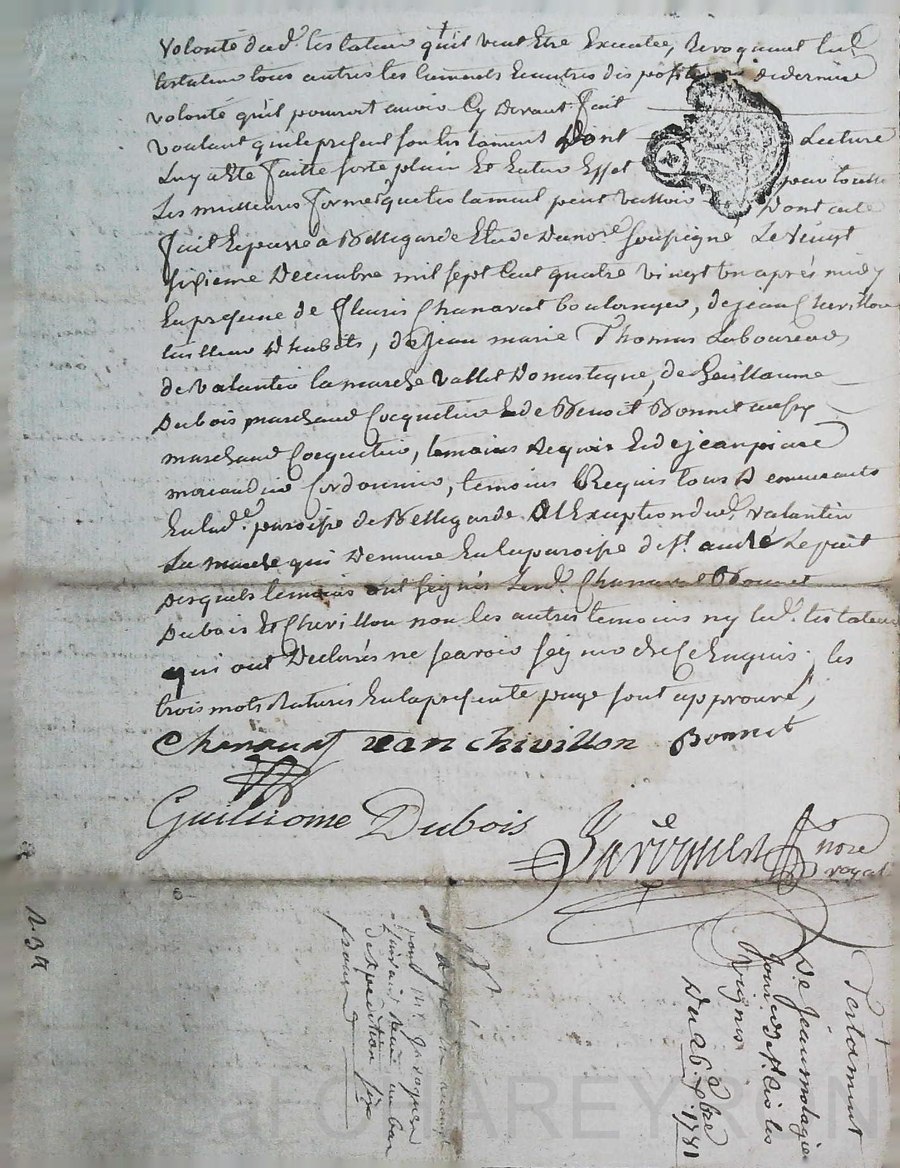 volonté dud. testateur qu'il veut Etre Executée, Revoquant led.
testateur tous autres testaments Et autres dispositions de derniere
volonté qu'il pourroit avoir Cy Devant fait
voulant que le present son testament Dont Lecture
Luy a Eté faitte sorte plain Et Entier Effet pour toutes
Les meilleures formes que testament peut valloir, Dont acte
fait Et passé a Bellegarde Etude Du nore. soussigné, Le vingt
sixieme Decembre mil sept Cent quatre vingt un après midy
En presence de fleuris Chanavat boulanger, de jean Chivillon
tailleur D'habits, de jean marie Thomas Laboureur,
de valantin la marche vallet Domestique, de Guillaume
Dubois marchand Cocquetier Et de Benoit Bonnet aussy
marchand Cocquetier, temoins Requis Et de jean pierre
Cordonnier, temoins Requis tous Demeurants
En lad. paroisse de Bellegarde a L'Exception dud. valantin
La marche qui Demeure En la paroisse de St. andré Le puit
desquels temoins ont signés Lesd. Chanavat Bonnet
Dubois Et Chivillon non les autres temoins ny led. testateur
qui ont Declarés ne scavoir signer de ce Enquis; les
trois mots Raturés En la presente page sont approuvé,
Chanavat jean chivillon Bonnet
Guilliome Dubois
nore
royal
Testament
De jean
Du 26. xbre
1781
pour mr.
d'expedition six
francs